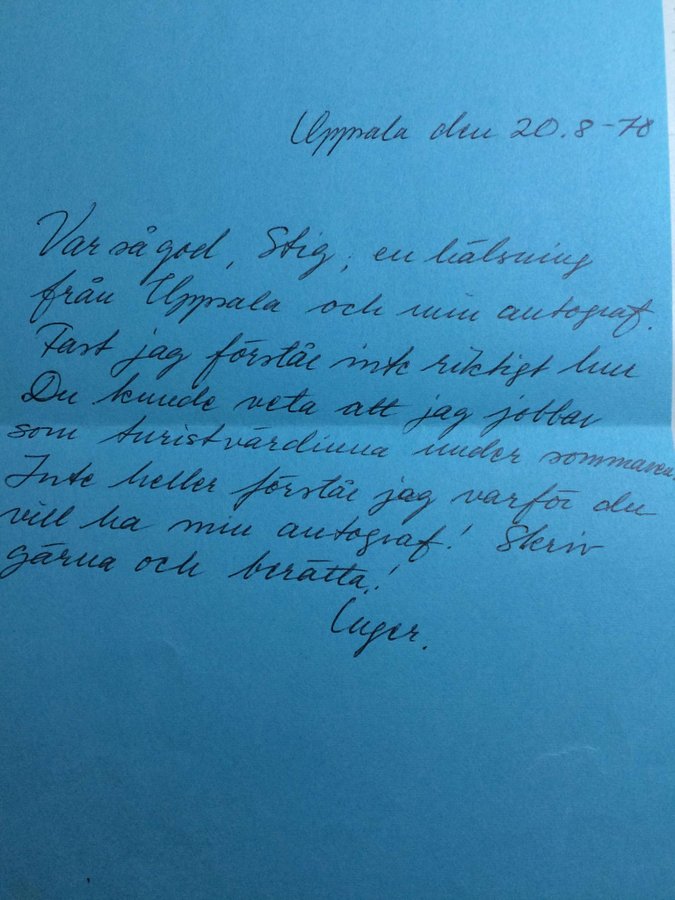 Uppsala den 20.8-78
Var så god, Stig, en hälsning
från Uppsala och min autograf.
Fast jag förstår inte riktigt hur
Du kunde veta att jag jobbar
som turistvärdinna under sommaren.
Inte heller förstår jag varför du
vill ha min autograf! Skriv
gärna och berätta!
Inger.